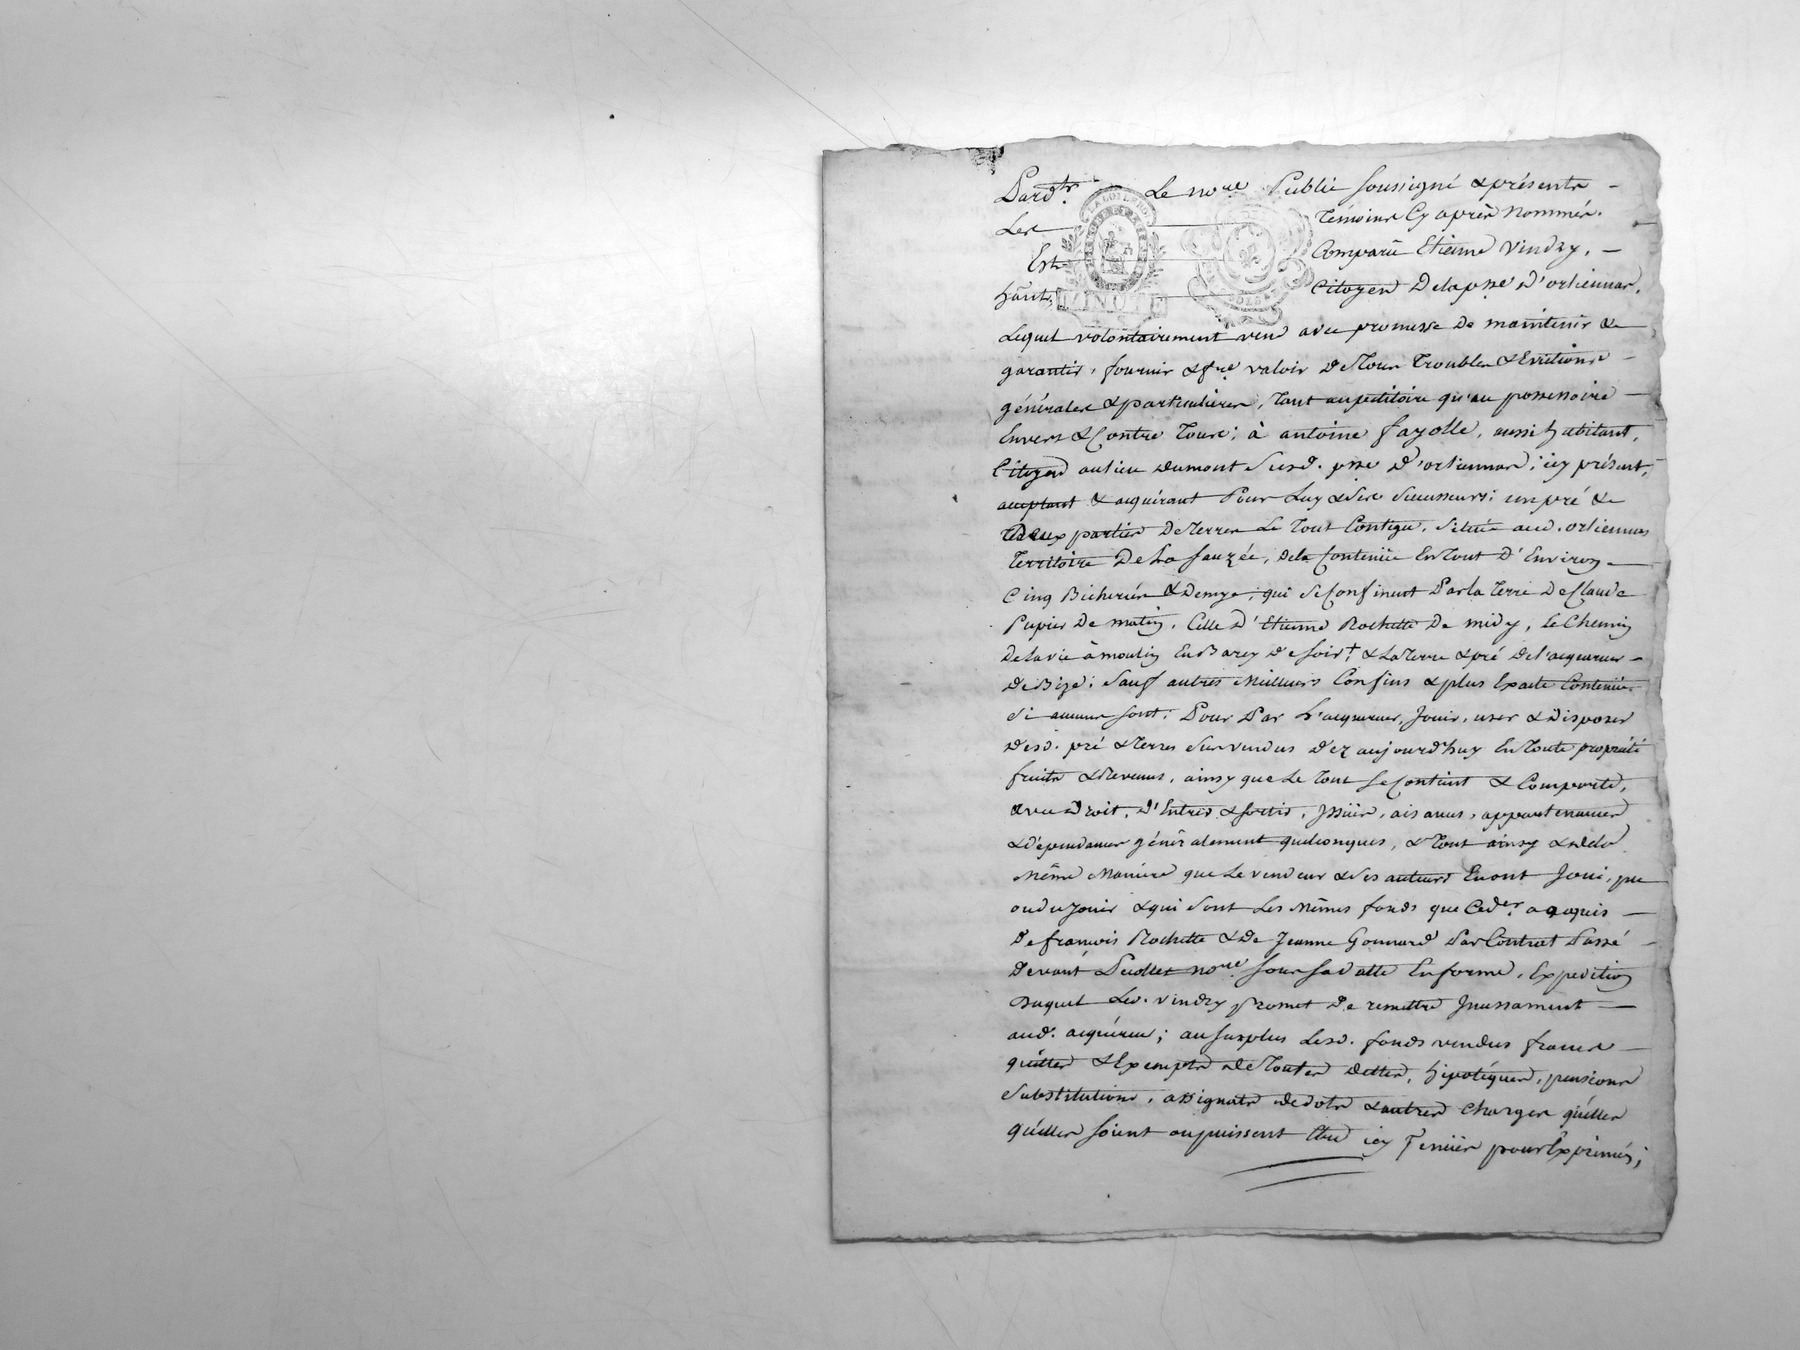 Pard.t Le no.re Public soussigné & présents
Les témoins Cy après nommés.
Est Comparu Etienne Vindry,
hãnt, Citoyen De la p.sse d'orliennas,
Lequel volontairement vend avec promesse de maintenir &
garantir, fournir & f.re valoir De Tous Troubles & Evictions
générales & particulières, tant au petitoire qu'au possessoire
Envers & Contre Tous; à antoine fayolle, aussi habitant,
Citoyen au lieu Dumont Susd. p.sse D'orliennas, icy présent,
acceptant & acquérant Pour Luy & Ses Successeurs; un pré &
Deux parties De Terres Le Tout Contigu, Situé aud. orliennas
Territoire De La Sauzée, De la Contenüe En Tout D'Environ
Cinq Bicherées & Demye, qui Se Confinent Par la Terre De Claude
Pupier De matin, Celle D'Etienne Rochette De midy, Le Chemin
De la vie à moulin En Barey De Soir † & La Terre & pré De l'acquereur
De Bize; Sauf autres Meilleurs Confins & plus Exacte Contenüe
Si aucuns Sont; Pour Par L'acquereur, Jouir, user & Disposer
Desd. pré & Terres Sus vendus Dez aujourd'huy En Toute propriété
fruits & Revenus, ainsy que Le Tout Se Contient & Comporte,
avec Droit, D'Entrés & Sortis, Issües, aisances, appartenances
& Dépendances généralement quelconques, & Tout ainsy & De la
Même Manière que Le vendeur & Ses auteurs En ont Joui, pu
ou du Jouir & qui Sont Les Mêmes fonds que Ced.er a acquis
De francois Rochette & De Jeanne Gonnard Par Contrat Passé
Devant no.re Sous Sa datte En forme, Expedition
Duquel Led. Vindry promet De remettre Incessament
aud. acquéreur; au Surplus Lesd. fonds vendus francs
quittes & Exempts De Toutes Dettes, hipotéques, pensions
Substitutions, assignats De dots & autres Charges qu'elles
qu'elles Soient ou puissent Etre icy Tenües pour Exprimées;